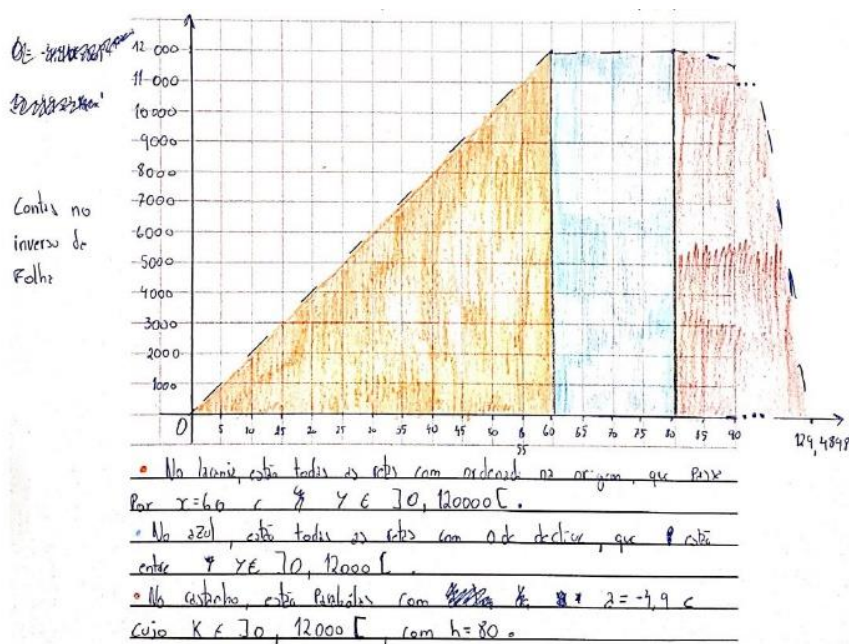 12 000
11 000
10 000
9000
8000
7000
6000
5000
4000
3000
2000
1000
Contas no
inverso de
Folha
0 5 10 15 20 25 30 35 40 45 50 55 60 65 70 75 80 85 90 ... 129,4898
• No laranja, estão todas as retas com ordenada na origem, que passe
Por x=60 e y ∈ ]0, 120000[.
• No azul, estão todas as retas com 0 de declive, que estão
entre y ∈ ]0, 12000[.
• No castanho, estão Parábolas com a = -4,9 e
cujo K ∈ ]0, 12000[ com h=80.